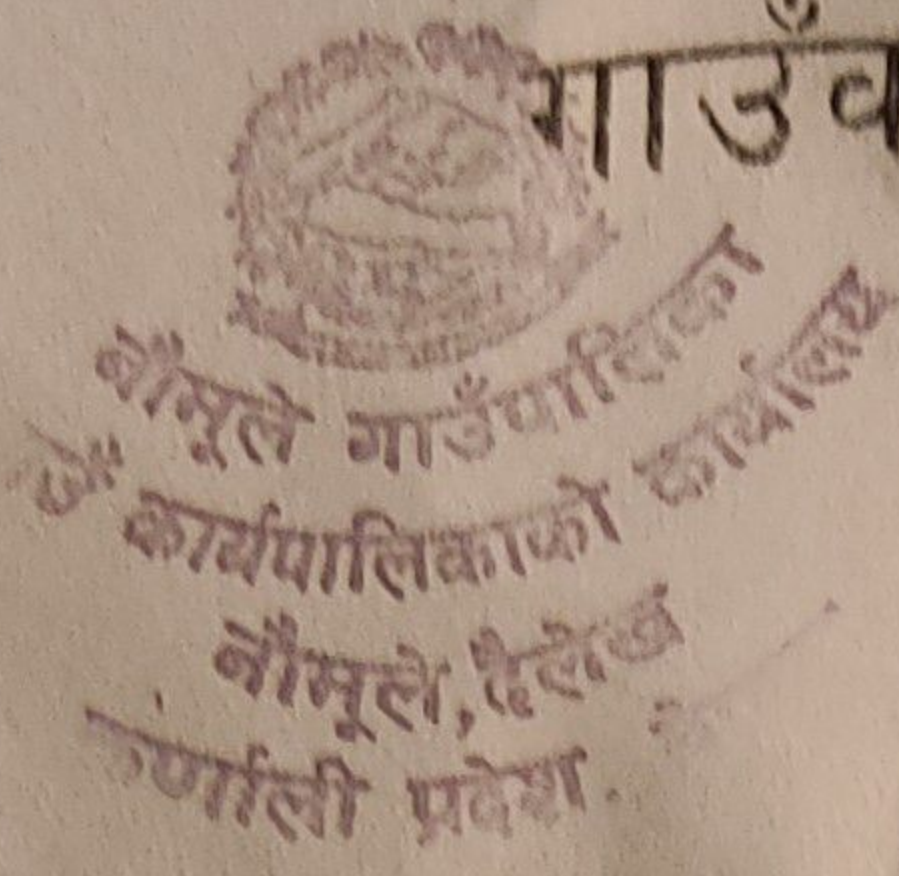 गाउँव
नौमूले गाउँपालिका
उँ कार्यपालिकाको कार्यालय
नौमूले, दैलेख
कर्णाली प्रदेश